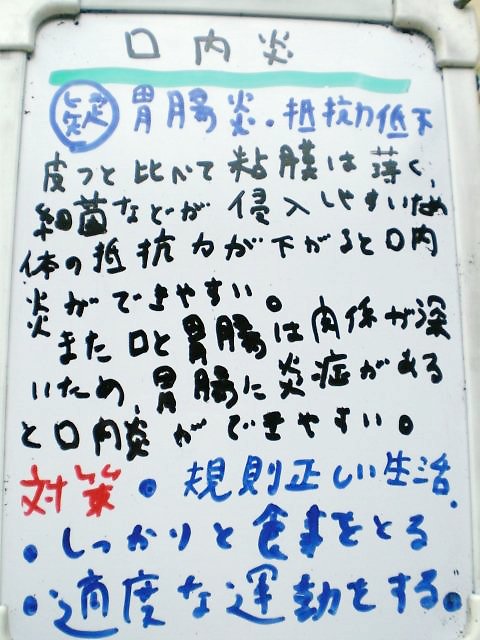 口内炎
胃腸炎・抵抗力低下
皮フと比べて粘膜は薄く、
細菌などが侵入しやすいため
体の抵抗力が下がると口内
炎ができやすい。
また口と胃腸は関係が深
いため、胃腸に炎症がある
と口内炎ができやすい。
対策・規則正しい生活.
・しっかりと食事をとる
・適度な運動をする。